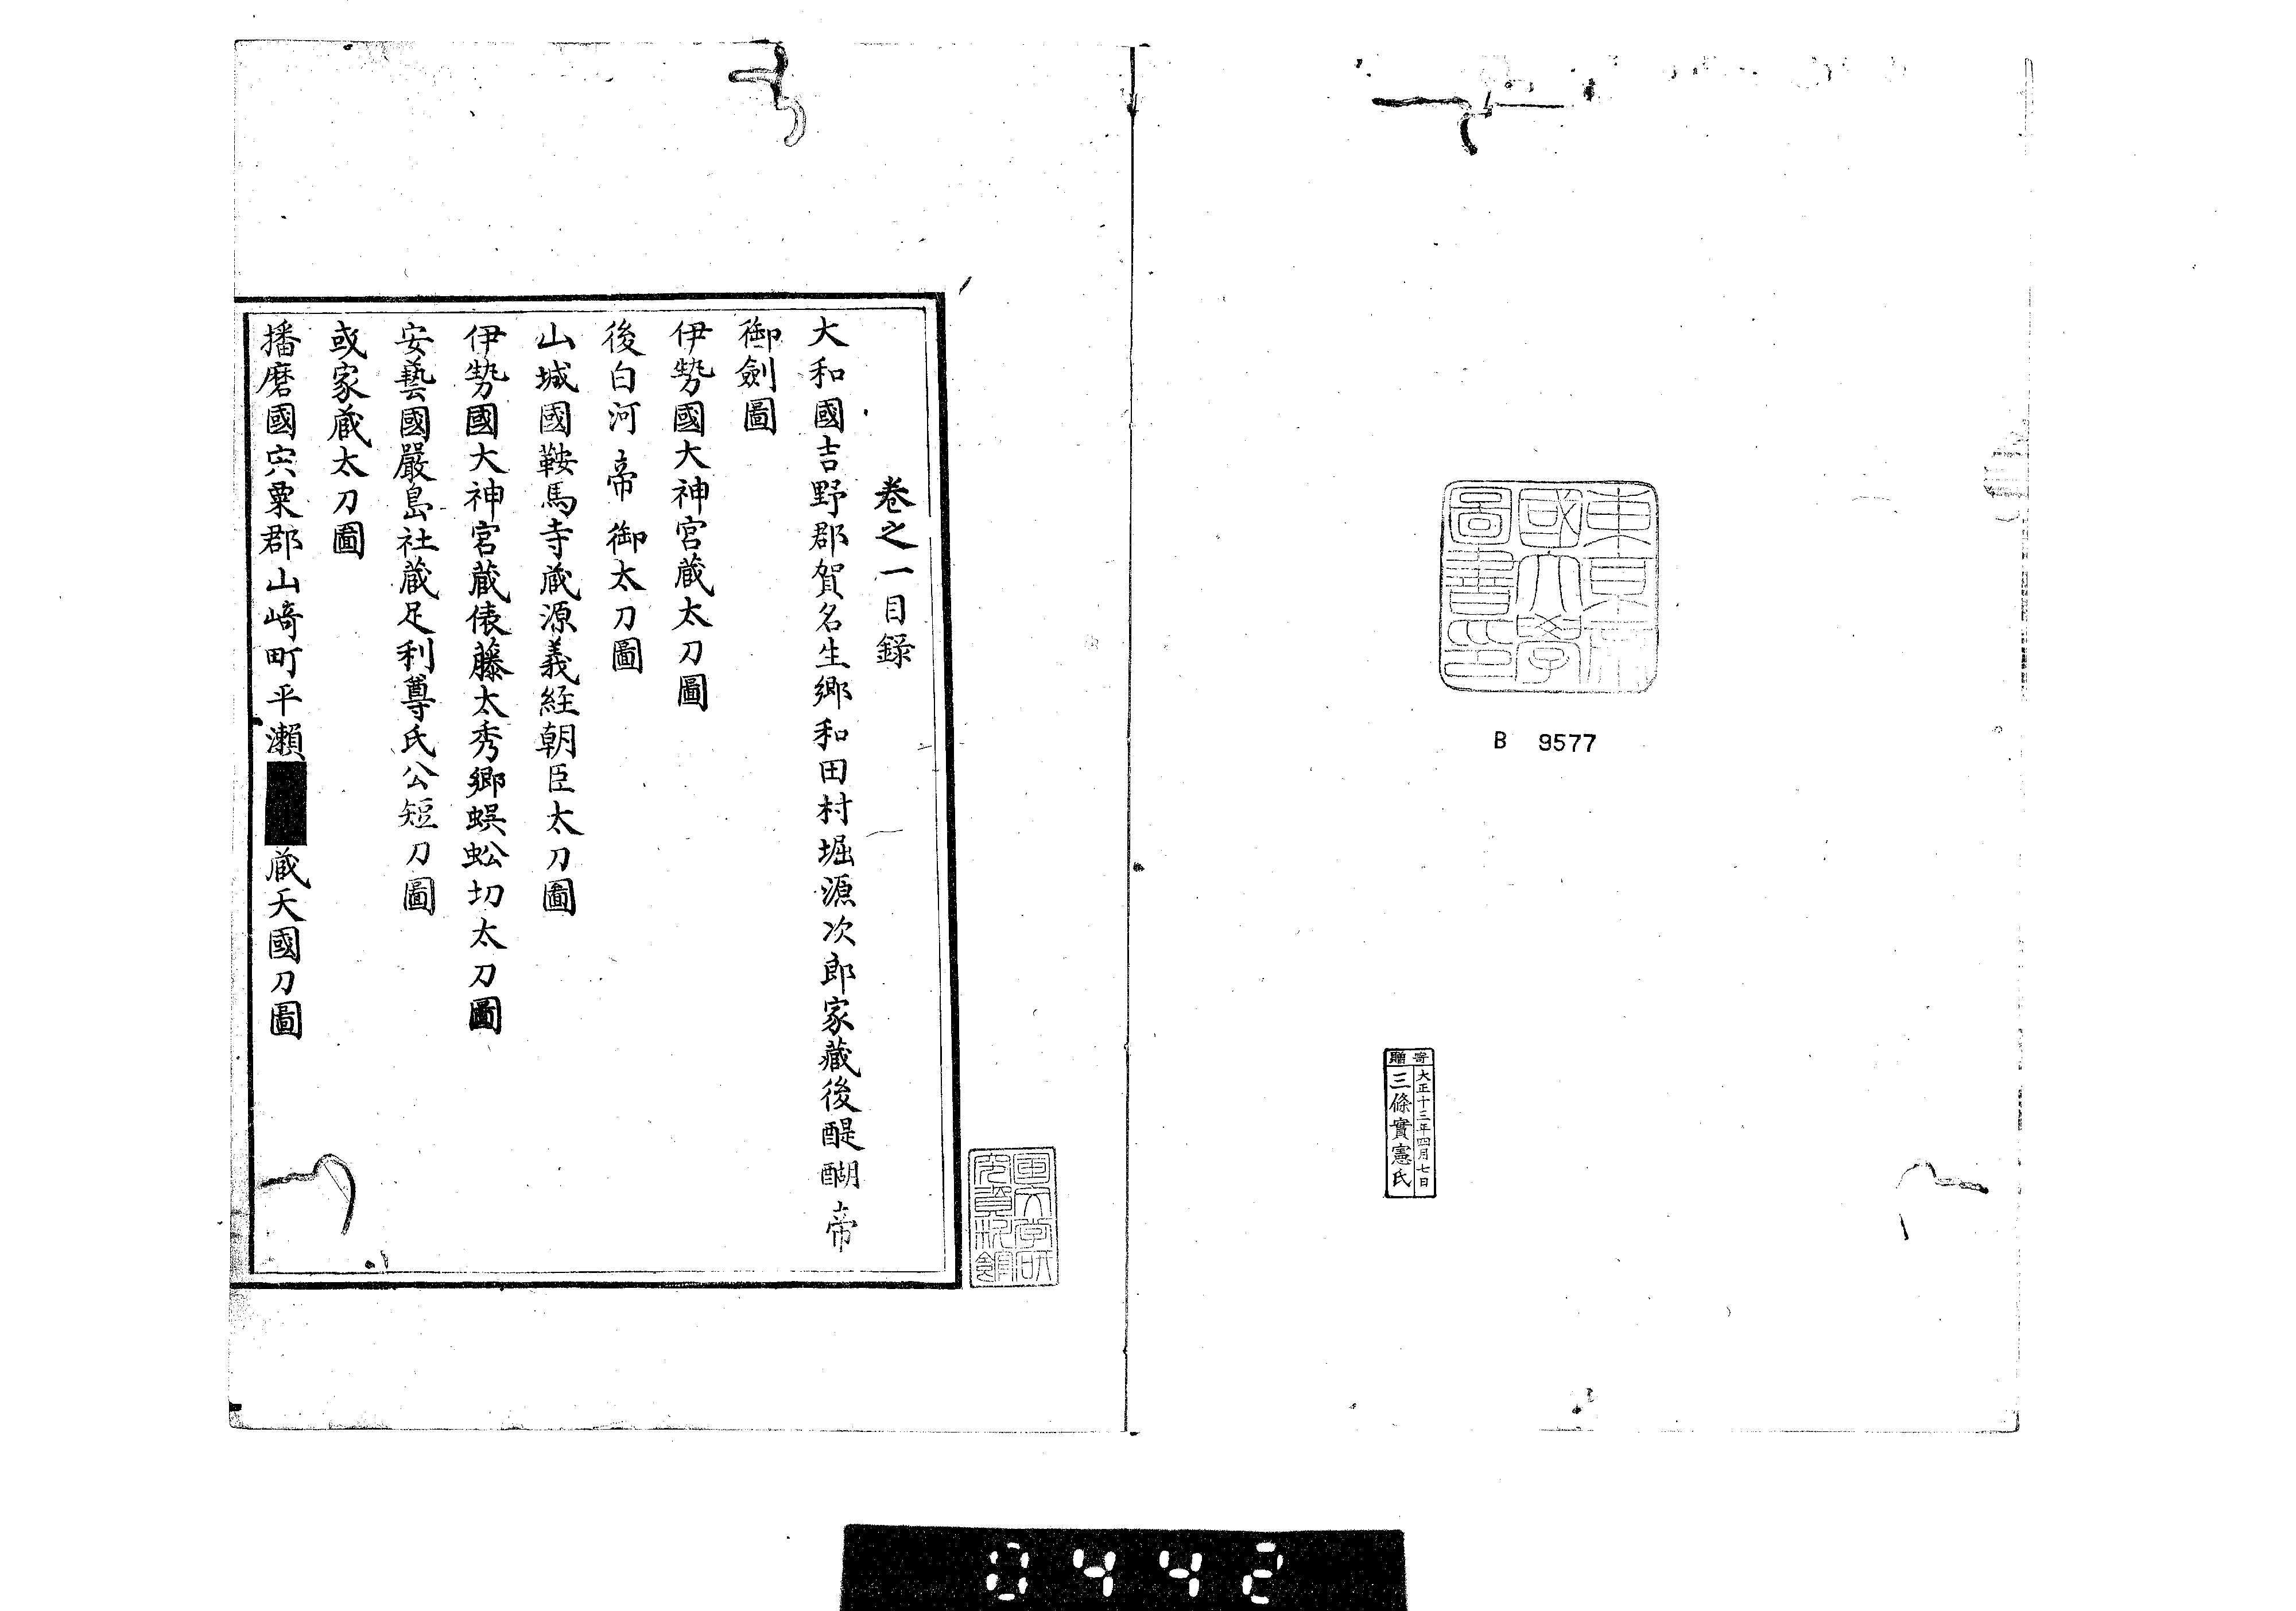 東京帝
國大學
圖書印
B 9577
寄贈
大正十三年四月七日
三條實憲氏
卷之一目錄
大和國吉野郡賀名生郷和田村堀源次郎家藏後醍醐帝
御劍圖
伊勢國大神宮藏太刀圖
後白河帝御太刀圖
山城國鞍馬寺藏源義経朝臣太刀圖
伊勢國大神宮藏俵藤太秀郷蜈蚣切太刀圖
安藝國嚴島社藏足利尊氏公短刀圖
或家藏太刀圖
播磨國宍粟郡山崎町平瀬
藏天國刀圖
0442